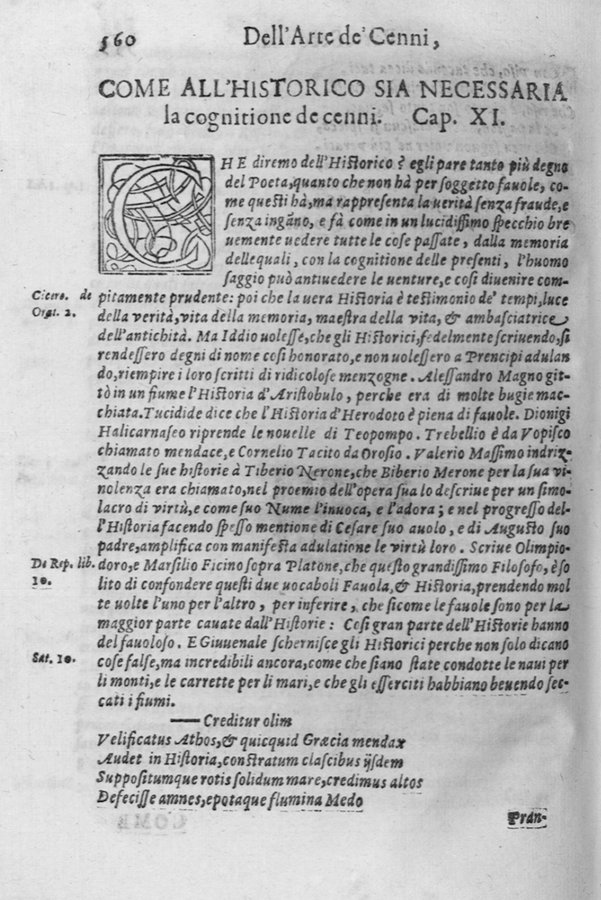 560 Dell'Arte de' Cenni,
COME ALL'HISTORICO SIA NECESSARIA
la cognitione de cenni. Cap. XI.
CHE diremo dell'Historico è egli pare tanto più degno
del Poeta, quanto che non hà per soggetto fauole, co-
me questi hà, ma rappresenta la verità senza fraude, e
senza ingãno, e fà come in un lucidissimo specchio bre
uemente uedere tutte le cose passate, dalla memoria
delle quali, con la cognitione delle presenti, l'huomo
saggio può antiuedere le uenture, e cosi diuenire com-
Cicero. de
Orat. 2.
pitamente prudente: poi che la uera Historia è testimonio de' tempi, luce
della verità, vita della memoria, maestra della vita, & ambasciatrice
dell'antichità. Ma Iddio uolesse, che gli Historici, fedelmente scriuendo, si
rendessero degni di nome cosi honorato, e non uolessero a Prencipi adulan
do, riempire i loro scritti di ridicolose menzogne. Alessandro Magno git-
tò in un fiume l'Historia d'Aristobulo, perche era di molte bugie mac-
chiata. Tucidide dice che l'Historia d'Herodoto è piena di fauole. Dionigi
Halicarnaseo riprende le nouelle di Teopompo. Trebellio è da Vopisco
chiamato mendace, e Cornelio Tacito da Orosio. Valerio Massimo indriz-
zando le sue historie à Tiberio Nerone, che Biberio Merone per la sua vi-
nolenza era chiamato, nel proemio dell'opera sua lo descriue per un simo-
lacro di virtù, e come suo Nume l'inuoca, e l'adora; e nel progresso del-
l'Historia facendo spesso mentione di Cesare suo auolo, e di Augusto suo
padre, amplifica con manifesta adulatione le virtù loro. Scriue Olimpio-
De Rep. lib.
10.
doro, e Marsilio Ficino sopra Platone, che questo grandissimo Filosofo, è so
lito di confondere questi due uocaboli Fauola, & Historia, prendendo mol
te uolte l'uno per l'altro, per inferire, che sicome le fauole sono per la
maggior parte cauate dall'Historie: Cosi gran parte dell'Historie hanno
del fauoloso. E Giuuenale schernisce gli Historici perche non solo dicano
Sat. 10.
cose false, ma incredibili ancora, come che siano state condotte le naui per
li monti, e le carrette per li mari, e che gli esserciti habbiano beuendo sec-
cati i fiumi.
— Creditur olim
Velificatus Athos, & quicquid Græcia mendax
Audet in Historia, constratum classcibus ijsdem
Suppositumque rotis solidum mare, credimus altos
Defecisse amnes, epotaque flumina Medo
Pran-